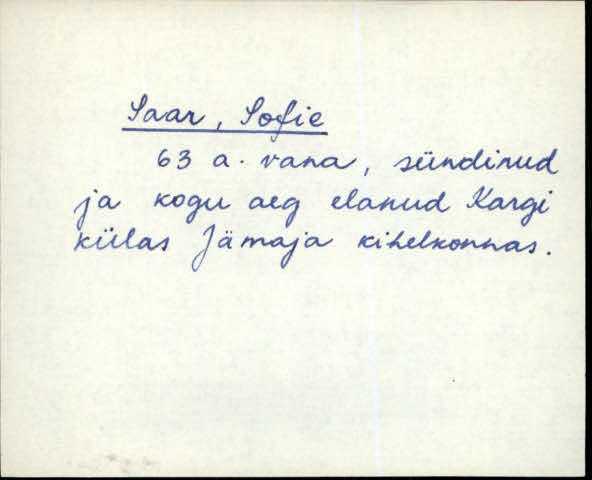 Saar, Sofie
63 a. vana, sündinud
ja kogu aeg elanud Kargi
külas Jämaja kihelkonnas.